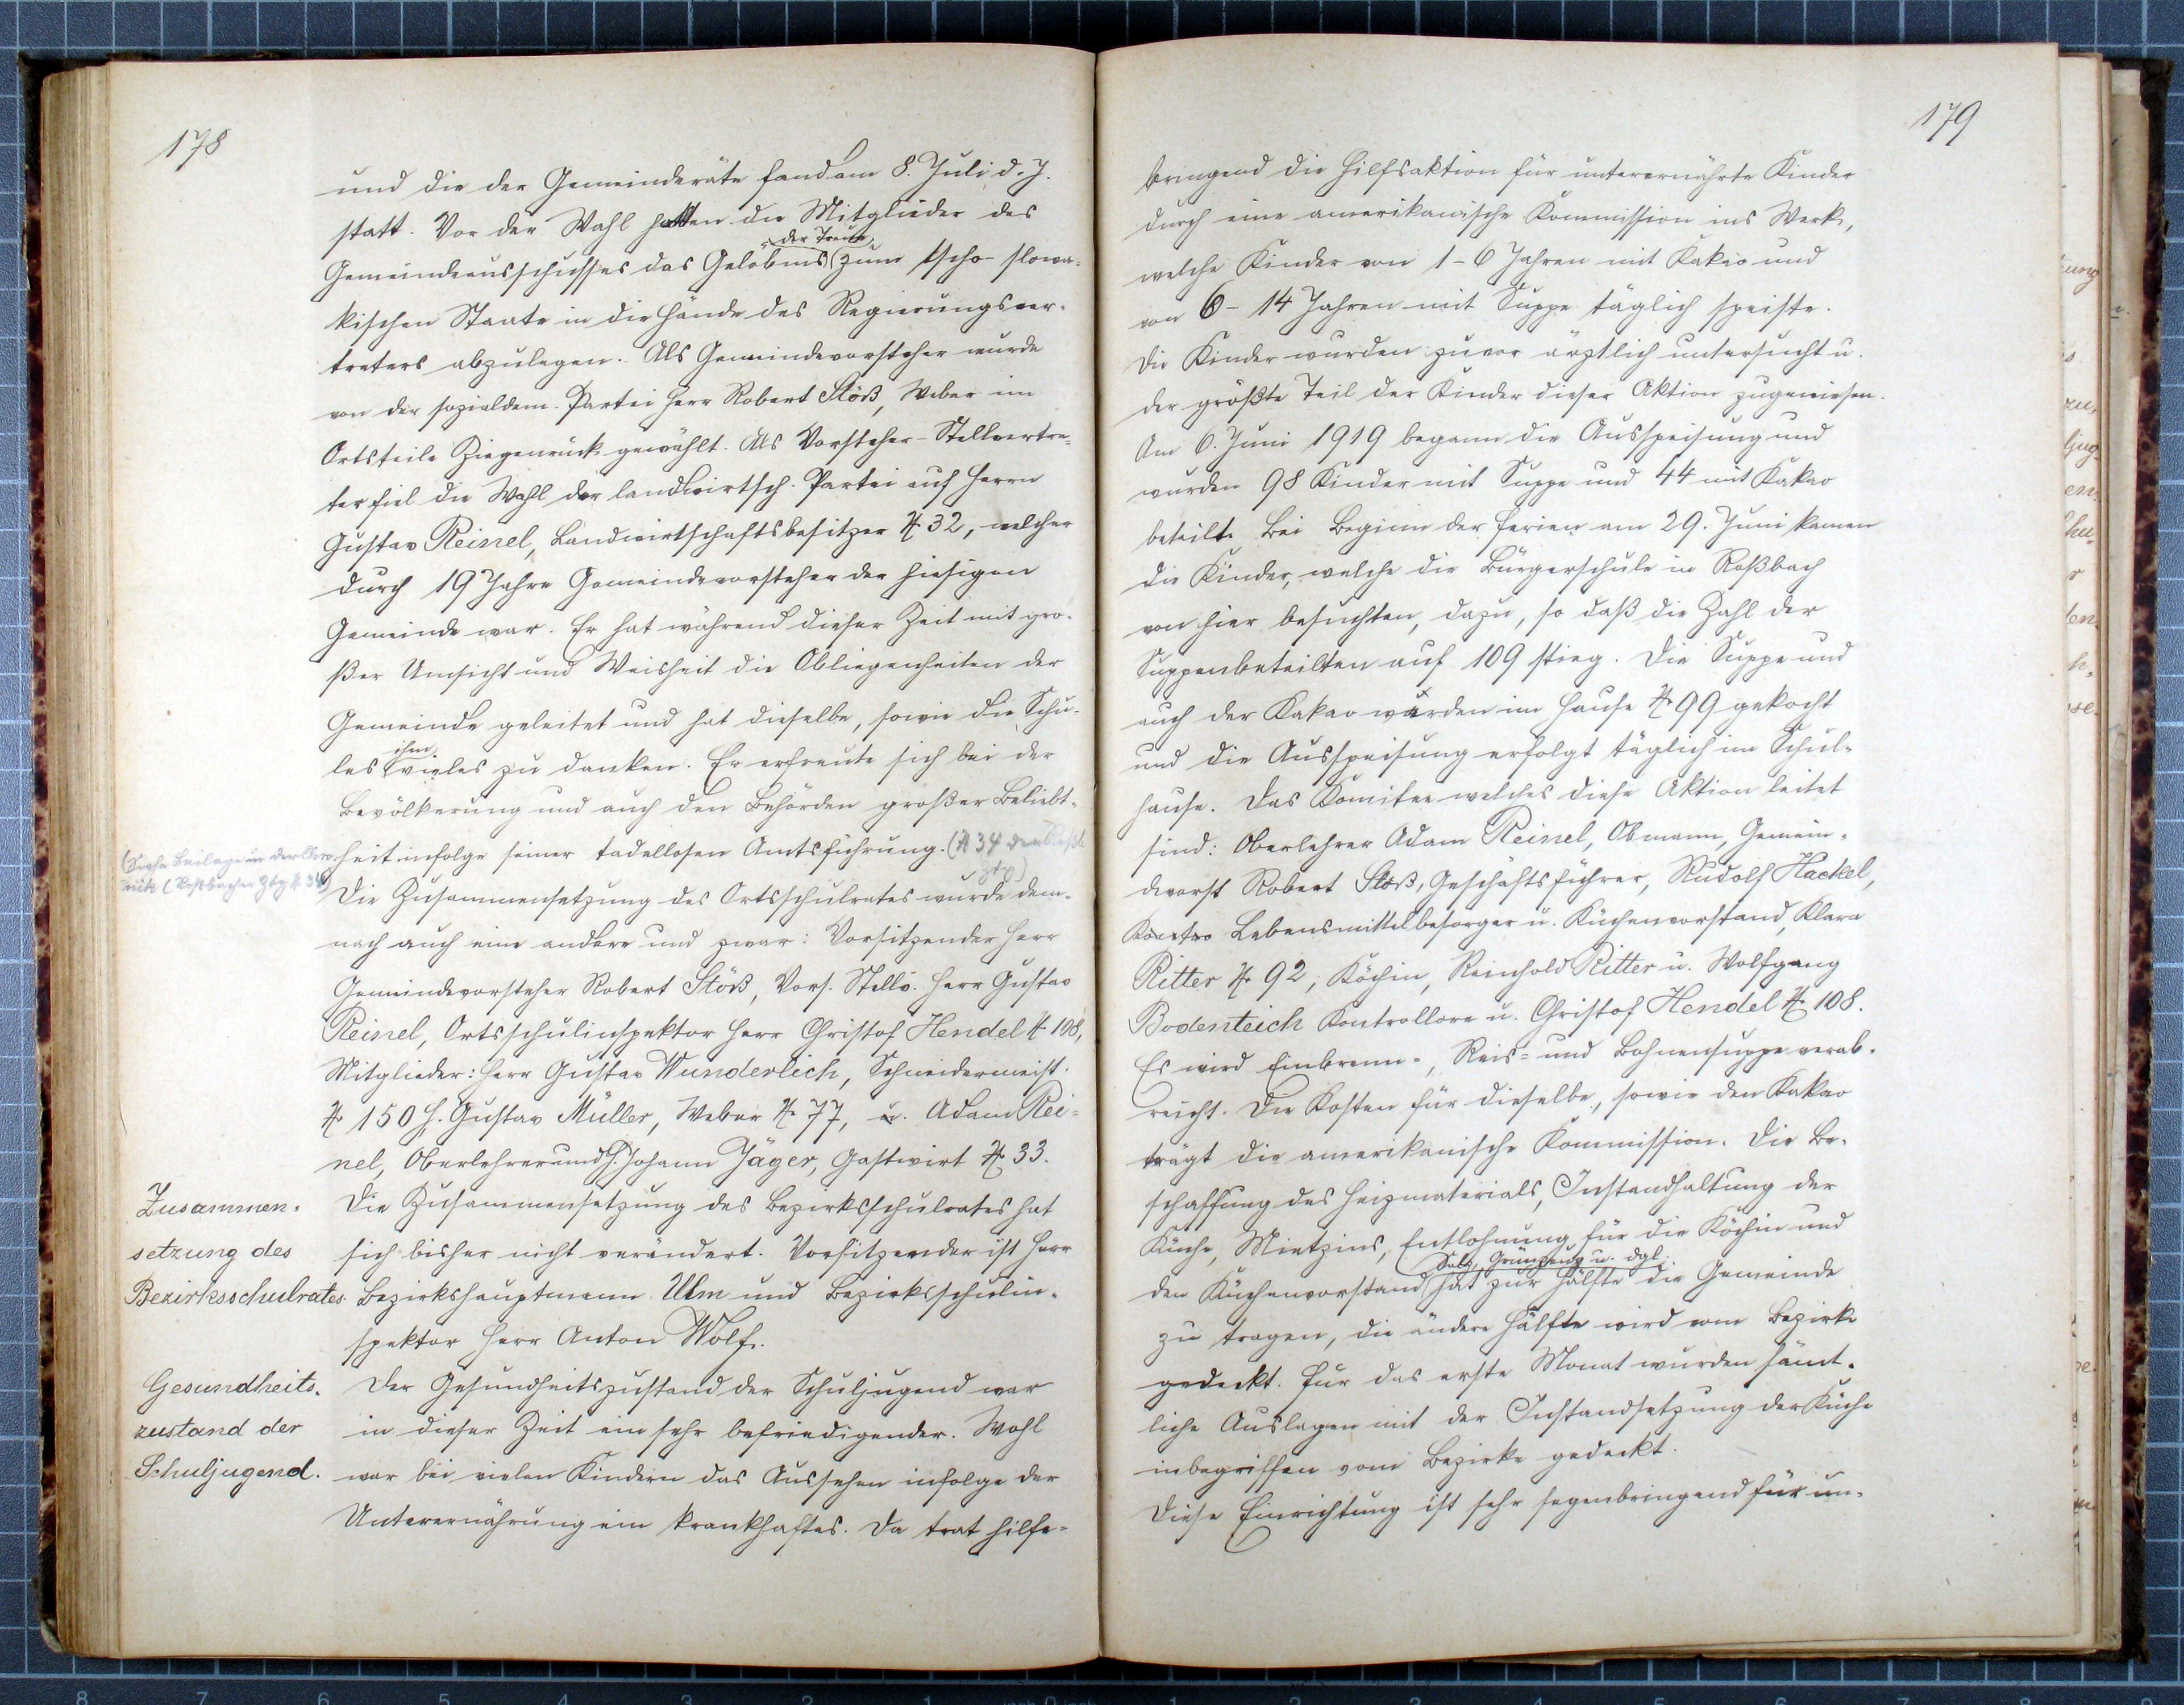 178
und die der Gemeinderäte fand am 8. Juli d. J.
statt. Vor der Wahl hatten die Mitglieder des
der Treue
Gemeindeausschusses das Gelöbnis zum tscho-slowa-
kischen Staate in die Hände des Regierungsver-
treters abzulegen. Als Gemeindevorsteher wurde
von der sozialdem. Partei Herr Robert Stöß, Weber im
Ortsteile Ziegenrück gewählt. Als Vorsteher-Stellvertre-
ter fiel die Wahl der landwirtsch. Partei auf Herrn
Gustav Reinel, Landwirtschaftsbesitzer N. 32, welcher
durch 19 Jahre Gemeindevorsteher der hiesigen
Gemeinde war. Er hat während dieser Zeit mit gro-
ßer Umsicht und Weisheit die Obliegenheiten der
Gemeinde geleitet und hat dieselbe, sowie die Schu-
ihm
le vieles zu danken. Er erfreute sich bei der
Bevölkerung und auch den Behörden großer Beliebt-
heit infolge seiner tadellosen Amtsführung. (N. 34 der Roßb.
Ztg)
(Siehe Beilage in der Chro-
nik (Roßbacher Ztg N. 34)
Die Zusammensetzung des Ortsschulrates wurde dem-
nach auch eine andere und zwar: Vorsitzender Herr
Gemeindevorsteher Robert Stöß, Vors. Stellv. Herr Gustav
Reinel, Ortsschulinspektor Herr Christof Hendel N. 108,
Mitglieder: Herr Gustav Wunderlich, Schneidermeist.
N. 150 H. Gustav Müller, Weber N. 77, u. Adam Rei-
nel, Oberlehrer und H. Johann Jäger, Gastwirt N. 33.
Zusammen-
setzung des
Bezirksschulrates.
Die Zusammensetzung des Bezirksschulrates hat
sich bisher nicht verändert. Vorsitzender ist Herr
Bezirkshauptmann Ulm und Bezirksschulin-
spektor Herr Anton Wolf.
Gesundheits-
zustand der
Schuljugend.
Der Gesundheitszustand der Schuljugend war
in dieser Zeit ein sehr befriedigender. Wohl
war bei vielen Kindern das Aussehen infolge der
Unterernährung ein krankhaftes. Da trat hilfe-
179
bringend die Hilfsaktion für unterernährte Kinder
durch eine amerikanische Kommission ins Werk,
welche Kinder von 1-6 Jahren mit Kakao und
von 6-14 Jahren mit Suppe täglich speiste.
Die Kinder wurden zuvor ärztlich untersucht u.
der größte Teil der Kinder dieser Aktion zugewiesen.
Am 6. Juni 1919 begann die Ausspeisung und
wurden 98 Kinder mit Suppe und 44 mit Kakao
beteilt. Bei Beginn der Ferien am 29. Juni kamen
die Kinder, welche die Bürgerschule in Roßbach
von hier besuchten, dazu, so daß die Zahl der
Suppenbeteilten auf 109 stieg. Die Suppe und
auch der Kakao wurden im Hause N. 99 gekocht
und die Ausspeisung erfolgt täglich im Schul-
hause. Das Komitee welches diese Aktion leitet
sind: Oberlehrer Adam Reinel, Obmann, Gemein-
devorst. Robert Stöß, Geschäftsführer, Rudolf Hackel,
Lebensmittelbesorger u. Küchenvorstand, Klara
Ritter N. 92, Köchin, Reinhold Ritter u. Wolfgang
Bodenteich Kontrollore u. Christof Hendel N. 108.
Es wird Einbrenn-, Reis- und Bohnensuppe verab-
reicht. Die Kosten für dieselbe, sowie den Kakao
trägt die amerikanische Kommission. Die Be-
schaffung des Heizmaterials, Instandhaltung der
Küche, Mietzins, Entlohnung für die Köchin und
Salz, Grünzeug u. dgl.
den Küchenvorstand hat zur Hälfte die Gemeinde
zu tragen, die andere Hälfte wird vom Bezirke
gedeckt. Für das erste Monat wurden sämt-
liche Auslagen mit der Instandsetzung der Küche
inbegriffen vom Bezirke gedeckt.
Diese Einrichtung ist sehr segenbringend für un-